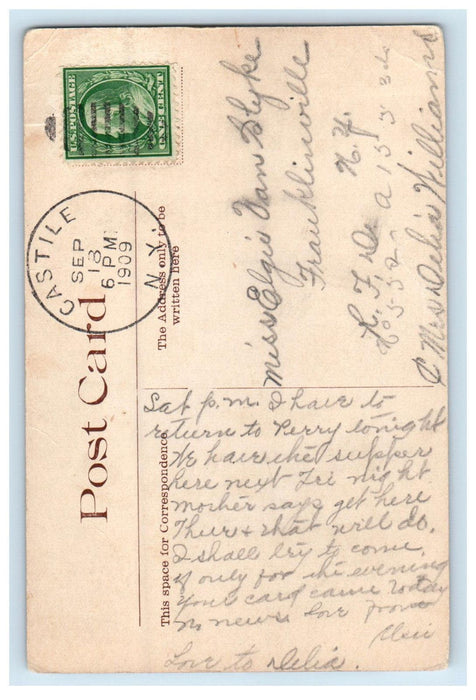 U.S. POSTAGE
ONE CENT
CASTILE
SEP
13
6 PM
1909
N.Y.
Post Card
The Address only to be
written here
This space for Correspondence
Miss Elgie Van Slyke
Franklinville
N.Y.
R. F. D.
C Mrs Delia Williams
Sat p.m. I have to
return to Perry tonight
We have the supper
here next Fri night
mother says get here
Thur & that will do.
I shall try to come
if only for the evening
Your card came today
No news. Love from
Love to Delia.